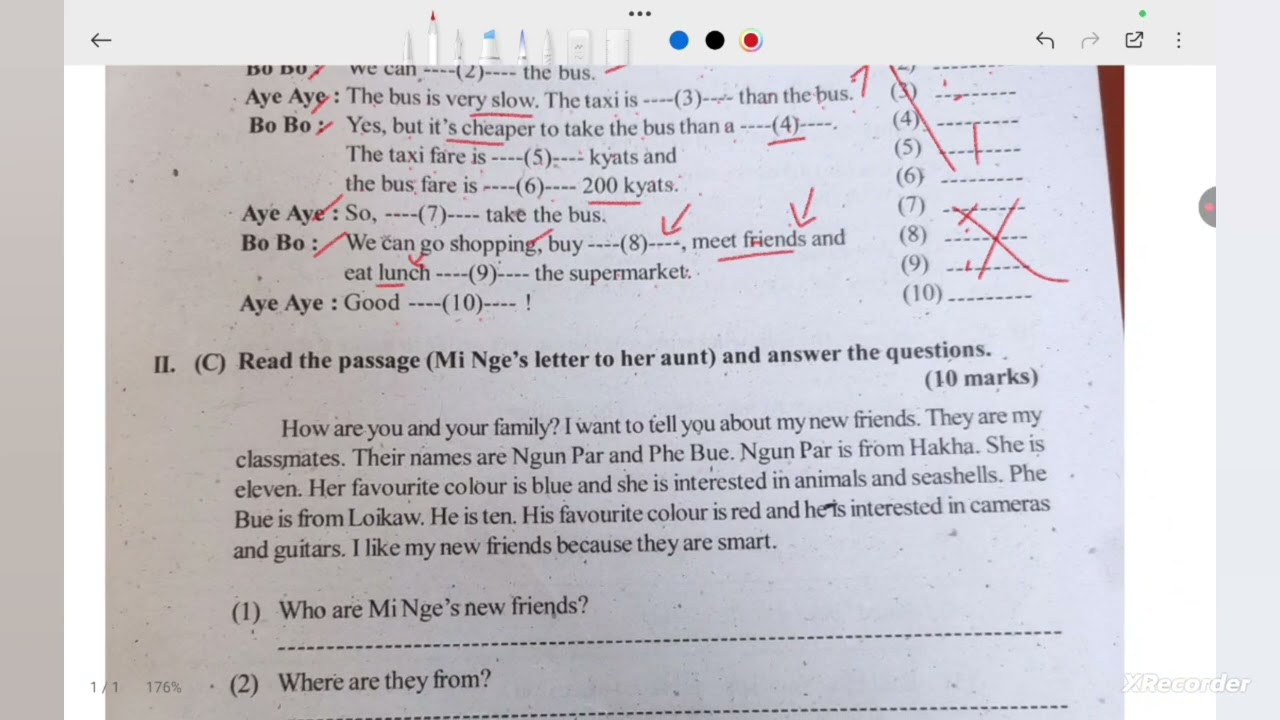 Bo Bo : We can ----(2)---- the bus.
(2) --------
Aye Aye : The bus is very slow. The taxi is ----(3)---- than the bus.
(3) --------
Bo Bo : Yes, but it's cheaper to take the bus than a ----(4)----.
(4) --------
The taxi fare is ----(5)---- kyats and
(5) --------
the bus fare is ----(6)---- 200 kyats.
(6) --------
Aye Aye : So, ----(7)---- take the bus.
(7) --------
Bo Bo : We can go shopping, buy ----(8)----, meet friends and
(8) --------
eat lunch ----(9)---- the supermarket.
(9) --------
Aye Aye : Good ----(10)---- !
(10) --------
II. (C) Read the passage (Mi Nge's letter to her aunt) and answer the questions.
(10 marks)
How are you and your family? I want to tell you about my new friends. They are my
classmates. Their names are Ngun Par and Phe Bue. Ngun Par is from Hakha. She is
eleven. Her favourite colour is blue and she is interested in animals and seashells. Phe
Bue is from Loikaw. He is ten. His favourite colour is red and he is interested in cameras
and guitars. I like my new friends because they are smart.
(1) Who are Mi Nge's new friends?
(2) Where are they from?
1 / 1 176%
XRecorder